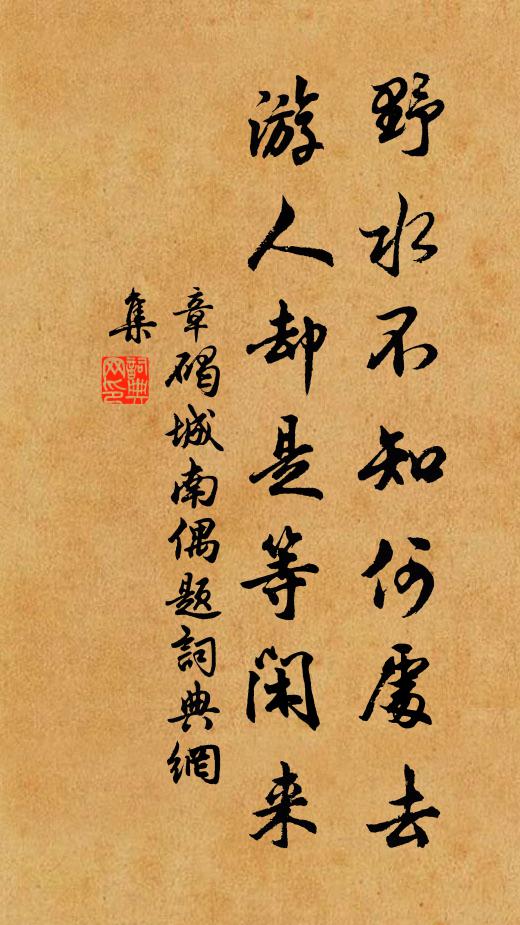 野水不知何處去
游人却是等閑来
章碣城南偶題詞典網
集
詞典
网印